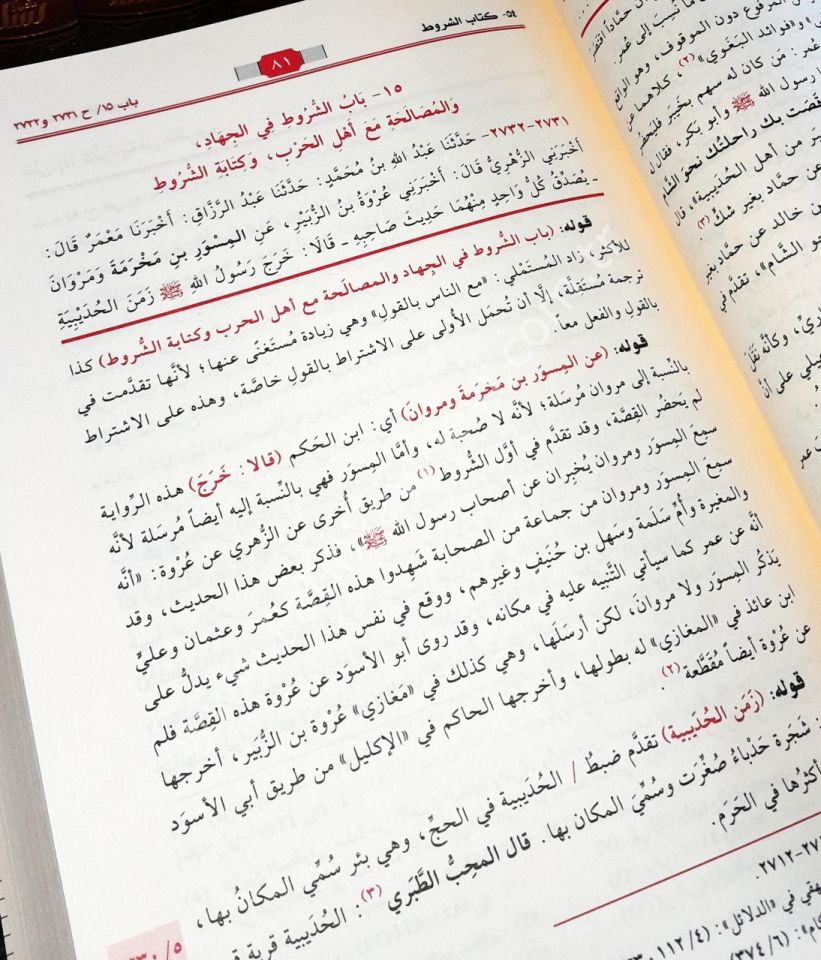 ٥٤- كتاب الشروط
٨١
باب ١٥/ ح ٢٧٣١ و٢٧٣٢
١٥- بَابُ الشُّرُوطِ فِي الجِهَادِ،
وَالمُصَالَحَةِ مَعَ أَهْلِ الحَرْبِ، وَكِتَابَةِ الشُّرُوطِ
٢٧٣١-٢٧٣٢- حَدَّثَنَا عَبْدُ اللهِ بنُ مُحَمَّدٍ: حَدَّثَنَا عَبْدُ الرَّزَّاقِ: أَخْبَرَنَا مَعْمَرٌ قَالَ:
أَخْبَرَنِي الزُّهْرِيُّ قَالَ: أَخْبَرَنِي عُرْوَةُ بنُ الزُّبَيْرِ، عَنِ المِسْوَرِ بنِ مَخْرَمَةَ وَمَرْوَانَ
- يُصَدِّقُ كُلُّ وَاحِدٍ مِنْهُمَا حَدِيثَ صَاحِبِهِ - قَالَا: خَرَجَ رَسُولُ اللهِ ﷺ زَمَنَ الحُدَيْبِيَةِ
قوله: (باب الشروط في الجهاد والمصالَحة مع أهل الحرب وكتابة الشُّروط) كذا
للأكثر، زاد المُستَمْلي: «مع الناس بالقولِ» وهي زيادة مُستَغنًى عنها؛ لأنَّها تقدَّمت في
ترجمة مُستَقِلَّة، إلَّا أن تُحمَل الأُولى على الاشتراط بالقولِ خاصَّة، وهذه على الاشتراط
بالقولِ والفعل معاً.
قوله: (عن المِسوَر بن مَخرَمةَ ومروانَ) أي: ابن الحَكم (قالا: خَرَجَ) هذه الرِّواية
بالنِّسبة إلى مروان مُرسَلة؛ لأنَّه لا صُحبة له، وأمَّا المِسوَر فهي بالنِّسبة إليه أيضاً مُرسَلة لأنَّه
لم يَحضُر القِصَّة، وقد تقدَّم في أوَّل الشُّروط (١) من طريق أُخرى عن الزُّهري عن عُرْوة: «أنَّه
سمِعَ المِسوَر ومروان يُخبِران عن أصحاب رسول الله ﷺ»، فذكر بعض هذا الحديث، وقد
سمِعَ المِسوَر ومروان من جماعة من الصحابة شَهِدوا هذه القِصَّة كعُمرَ وعثمان وعليٍّ
والمغيرة وأُم سَلَمة وسهل بن حُنَيفٍ وغيرهم، ووقع في نفس هذا الحديث شيء يدلُّ على
أنَّه عن عمر كما سيأتي التَّنبيه عليه في مكانه، وقد روى أبو الأسوَد عن عُرْوة هذه القِصَّة فلم
يَذكُر المِسوَر ولا مروانَ، لكن أرسَلَها، وهي كذلك في «مَغازي» عُرْوة بن الزُّبَير، أخرجها
ابن عائذ في «المغازي» له بطولها، وأخرجها الحاكم في «الإكليل» من طريق أبي الأسوَد
عن عُرْوة أيضاً مُقَطَّعة (٢).
قوله: (زَمَن الحُدَيبية) تقدَّم ضبطُ / الحُدَيبية في الحجِّ، وهي بئر سُمِّي المكانُ بها،
شجرة حَدْباءُ صُغِّرت وسُمِّيَ المكان بها. قال المحِبُّ الطَّبَري (٣): الحُدَيبية قرية
أكثرُها في الحَرَم.
٥/
٢٧١٢
في «الدلائل»: (٤/ ١١٢
(٦/ ٣٧٤)
المرفوع دون الموقوف، وهو الواقع
و«فوائد البَغَوي» (٢)، كلاهما عن
عمر: مَن كان له سهم بخَيبَر فليَحضُر
رسول الله ﷺ وأبو بكر، فقال له
رَقَصَت بك راحلتُك نحوَ الشَّام
من أهل الحُدَيبية»، قال
عن حمَّاد بغير شكٍّ (٣).
بن خالد عن حمَّاد بغير
نحو الشَّام»، تقدَّم في
وكأنَّه نَقَلَ
على أنَّ
عمر